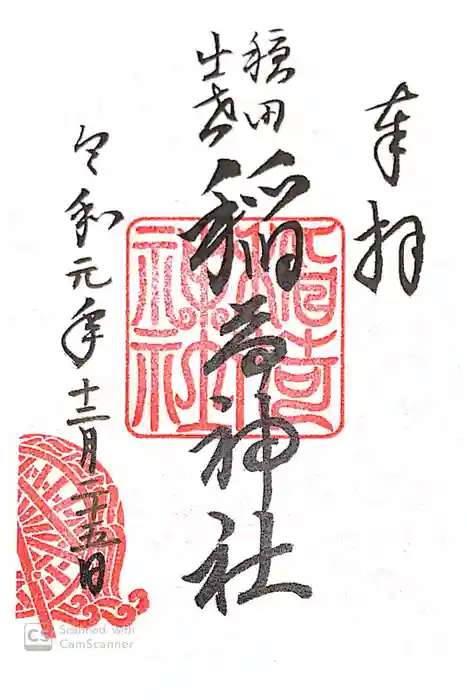 奉拝
穏田
出世
稲荷神社
令和元年十二月二十五日
稲荷
神社
CS Scanned with
CamScanner